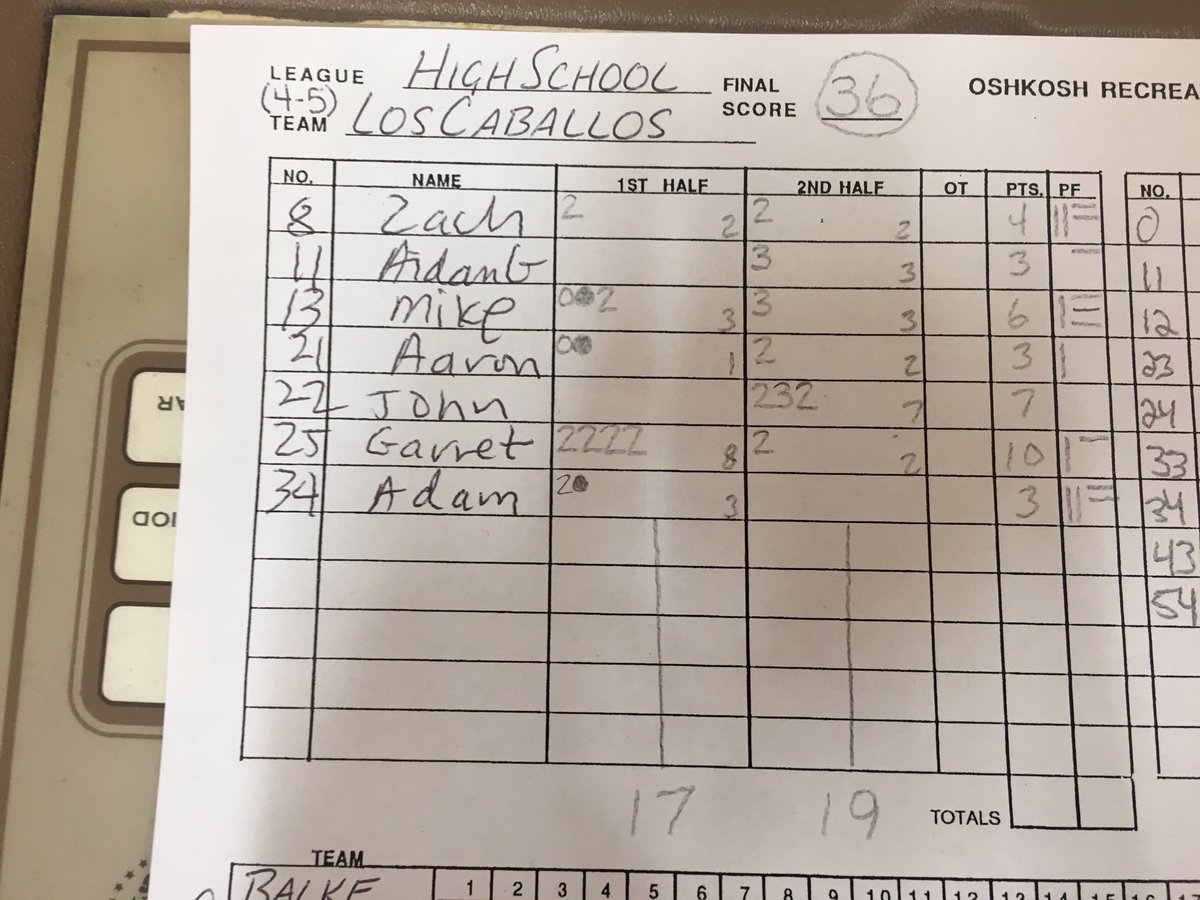 LEAGUE HIGH SCHOOL FINAL SCORE 36 OSHKOSH RECREA
(4-5)
TEAM LOS CABALLOS
NO. NAME 1ST HALF 2ND HALF OT PTS. PF NO.
8 Zach 2 2 2 2 4 0
11 AidanG 3 3 3 11
13 Mike 0 2 3 3 3 6 12
21 Aaron 0 1 2 2 3 23
22 John 232 7 7 24
25 Garret 2222 8 2 2 10 33
34 Adam 2 3 3 34
43
54
17 19 TOTALS
TEAM
BALKE 1 2 3 4 5 6 7 8 9 10 11 12 13 14 15 16 17
AR
IOD